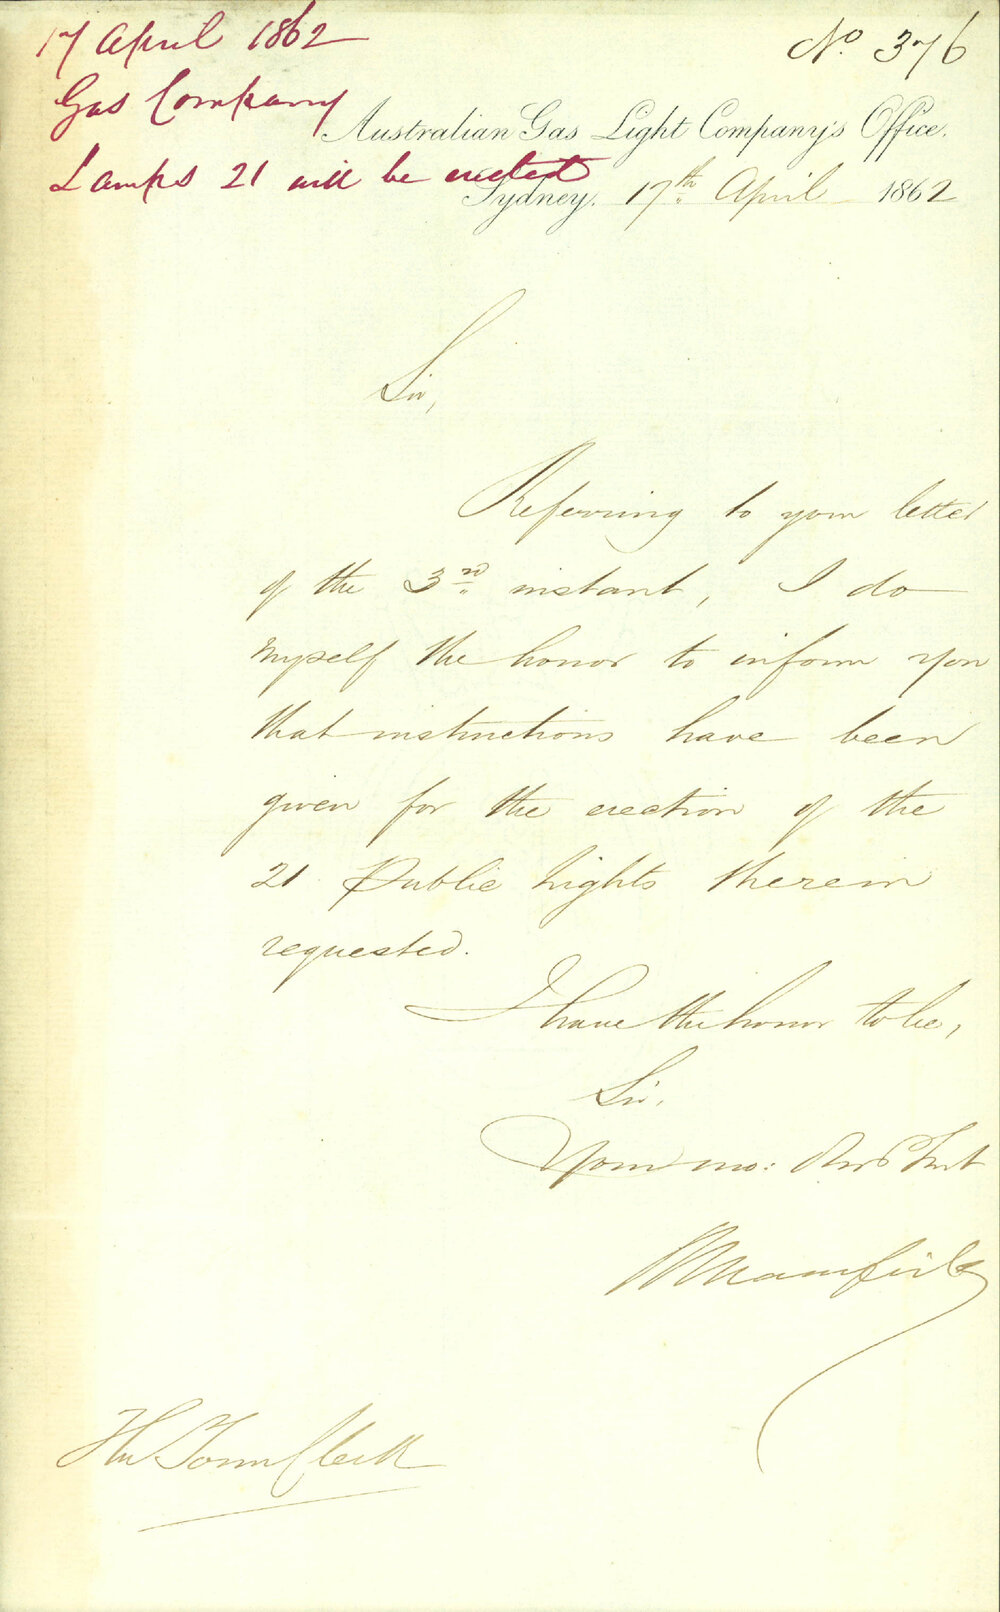 17 April 1862
No. 376
Gas Company
Australian Gas Light Company's Office.
Lamps 21 will be erected
Sydney. 17th April 1862
Sir,
Referring to your letter
of the 3rd instant, I do
myself the honor to inform you
that instructions have been
given for the erection of the
21 Public Lights therein
requested.
I have the honor to be,
Sir,
Your mo: Obt Svt
Mansfield
The Town Clerk